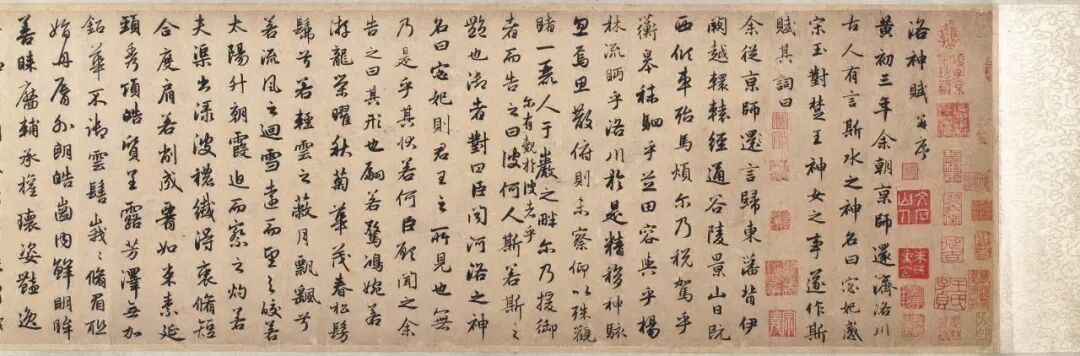 洛神賦 并序
黃初三年余朝京師還濟洛川
古人有言斯水之神名曰宓妃感
宋玉對楚王神女之事遂作斯
賦其詞曰
余從京師還言歸東藩背伊
闕越轘轅經通谷陵景山日既
西傾車殆馬煩尔乃稅駕乎
蘅皋秣駟乎芝田容與乎楊
林流眄乎洛川於是精移神駭
忽焉思散俯則未察仰以殊觀
睹一麗人于巖之畔尔乃援御
者而告之曰尔有覿於彼者乎彼何人斯若斯之
豔也御者對曰臣聞河洛之神
名曰宓妃則君王之所見也無
乃是乎其狀若何臣願聞之余
告之曰其形也翩若驚鴻婉若
游龍榮曜秋菊華茂春松髣
髴兮若輕雲之蔽月飄飄兮
若流風之迴雪遠而望之皎若
太陽升朝霞迫而察之灼若
夫渠出淥波穠纖得衷脩短
合度肩若削成腰如束素延
頸秀項皓質呈露芳澤無加
鉛華不御雲髻峩〻脩眉聯
娟丹脣外朗皓齒內鮮明眸
善睞靨輔承權瓌姿豔逸